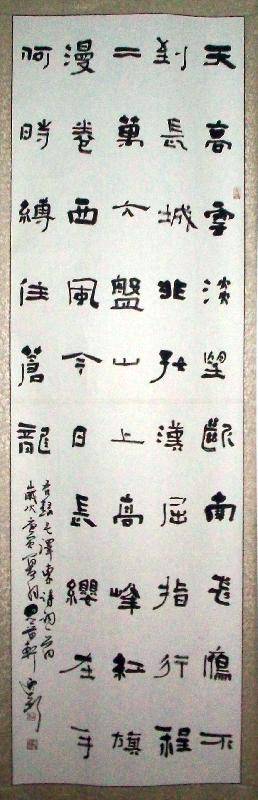 天高雲淡望斷南飛鴈不
到長城非好漢屈指行程
二萬六盤山上高峰紅旗
漫卷西風今日長纓在手
何時縛住蒼龍
右錄毛澤東詩詞一首
歲次庚寅夏月